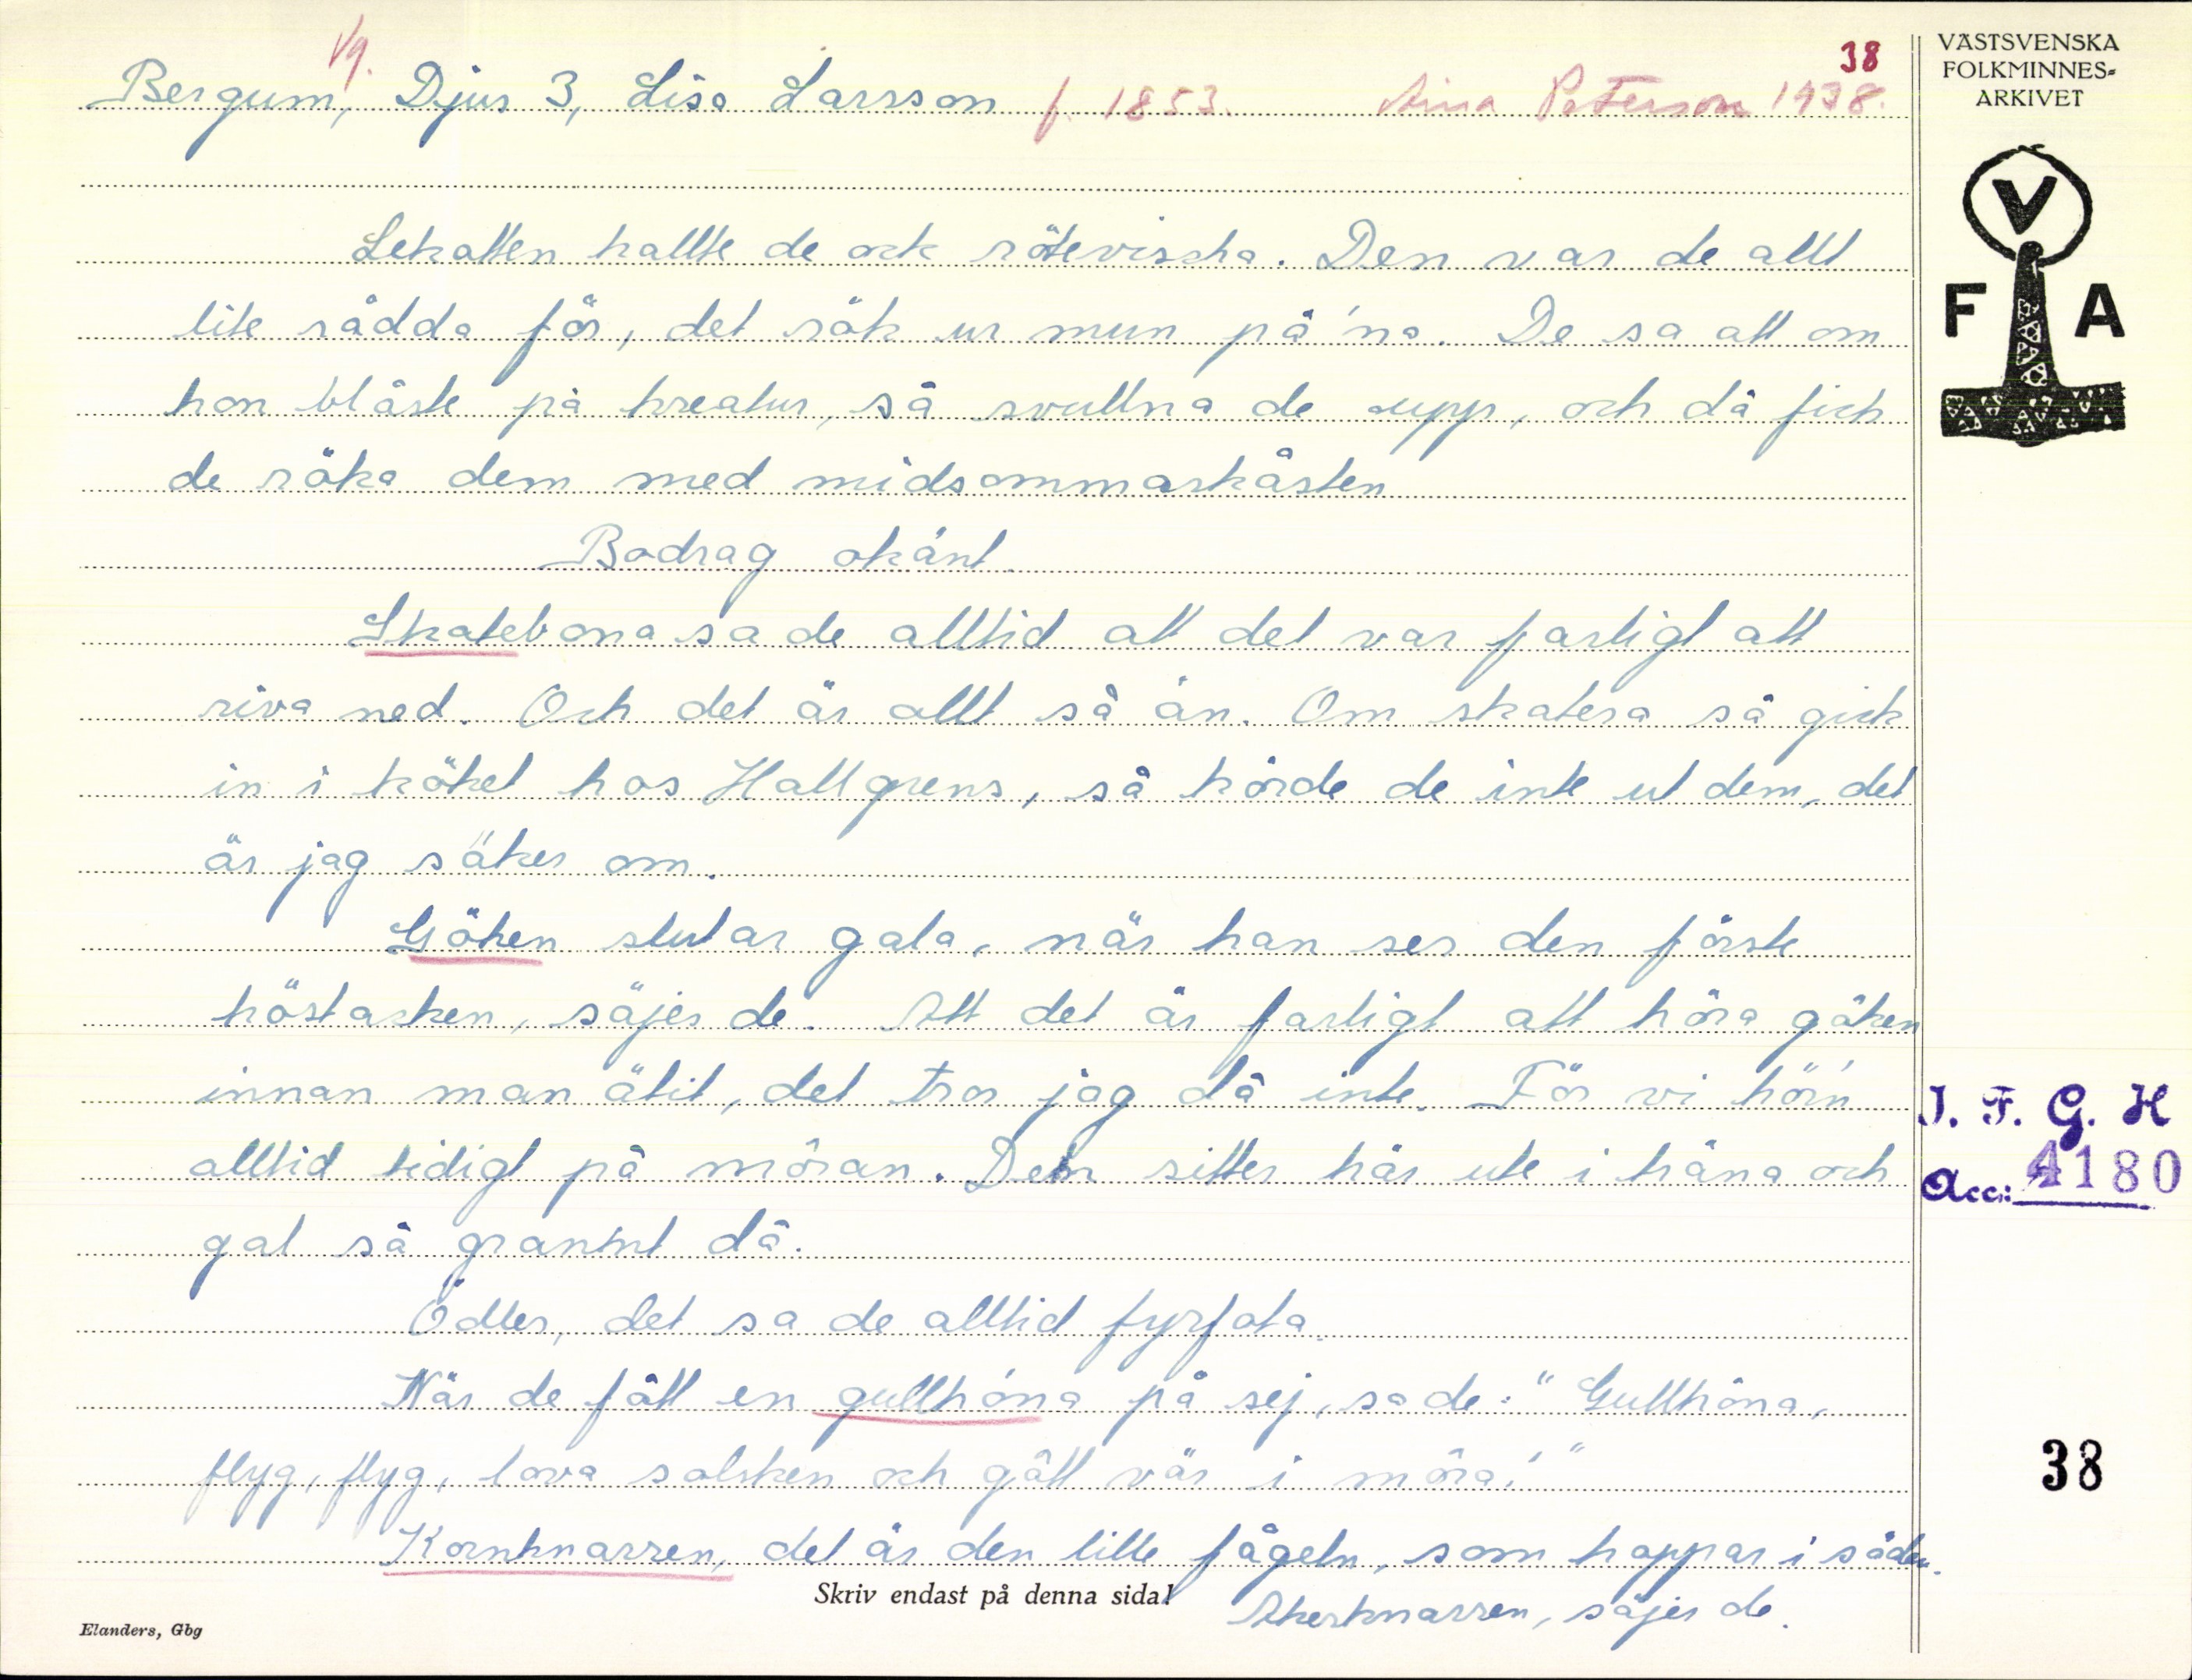 Vg.
38
Bergum, Djur 3, Lisa Larsson f. 1853. Aina Peterson 1938.
VÄSTSVENSKA
FOLKMINNES-
ARKIVET
V
F A
Lekatten kallte de ock rötevischa. Den var de allt
lite rädda för, det rök ur mun på'na. De sa att om
hon blåste på kreatur, så svullna de upp, och då fick
de röka dem med midsommarkåsten
Bodrag okänt.
Skatebona sa de alltid att det var farligt att
riva ned. Och det är allt så än. Om skatera så gick
in i köket hos Hallgrens, så körde de inte ut dem, det
är jag säker om.
Göken slutar gala, när han ser den förste
höstacken, säjer de. Att det är farligt att höra göken
innan man ätit, det tror jag då inte. För vi hör'n
alltid tidigt på möran. Den sitter här ute i träna och
gal så grannt då.
Ödler, det sa de alltid fyrfota.
När de fått en gullhöna på sej, sa de: "Gullhöna,
flyg, flyg, lova solsken och gått vär i möra!"
Kornknarren, det är den lille fågeln, som hoppar i säden.
Åkerknarren, säjer de.
Skriv endast på denna sida!
Elanders, Gbg
I. F. G. H
Acc: 4180
38